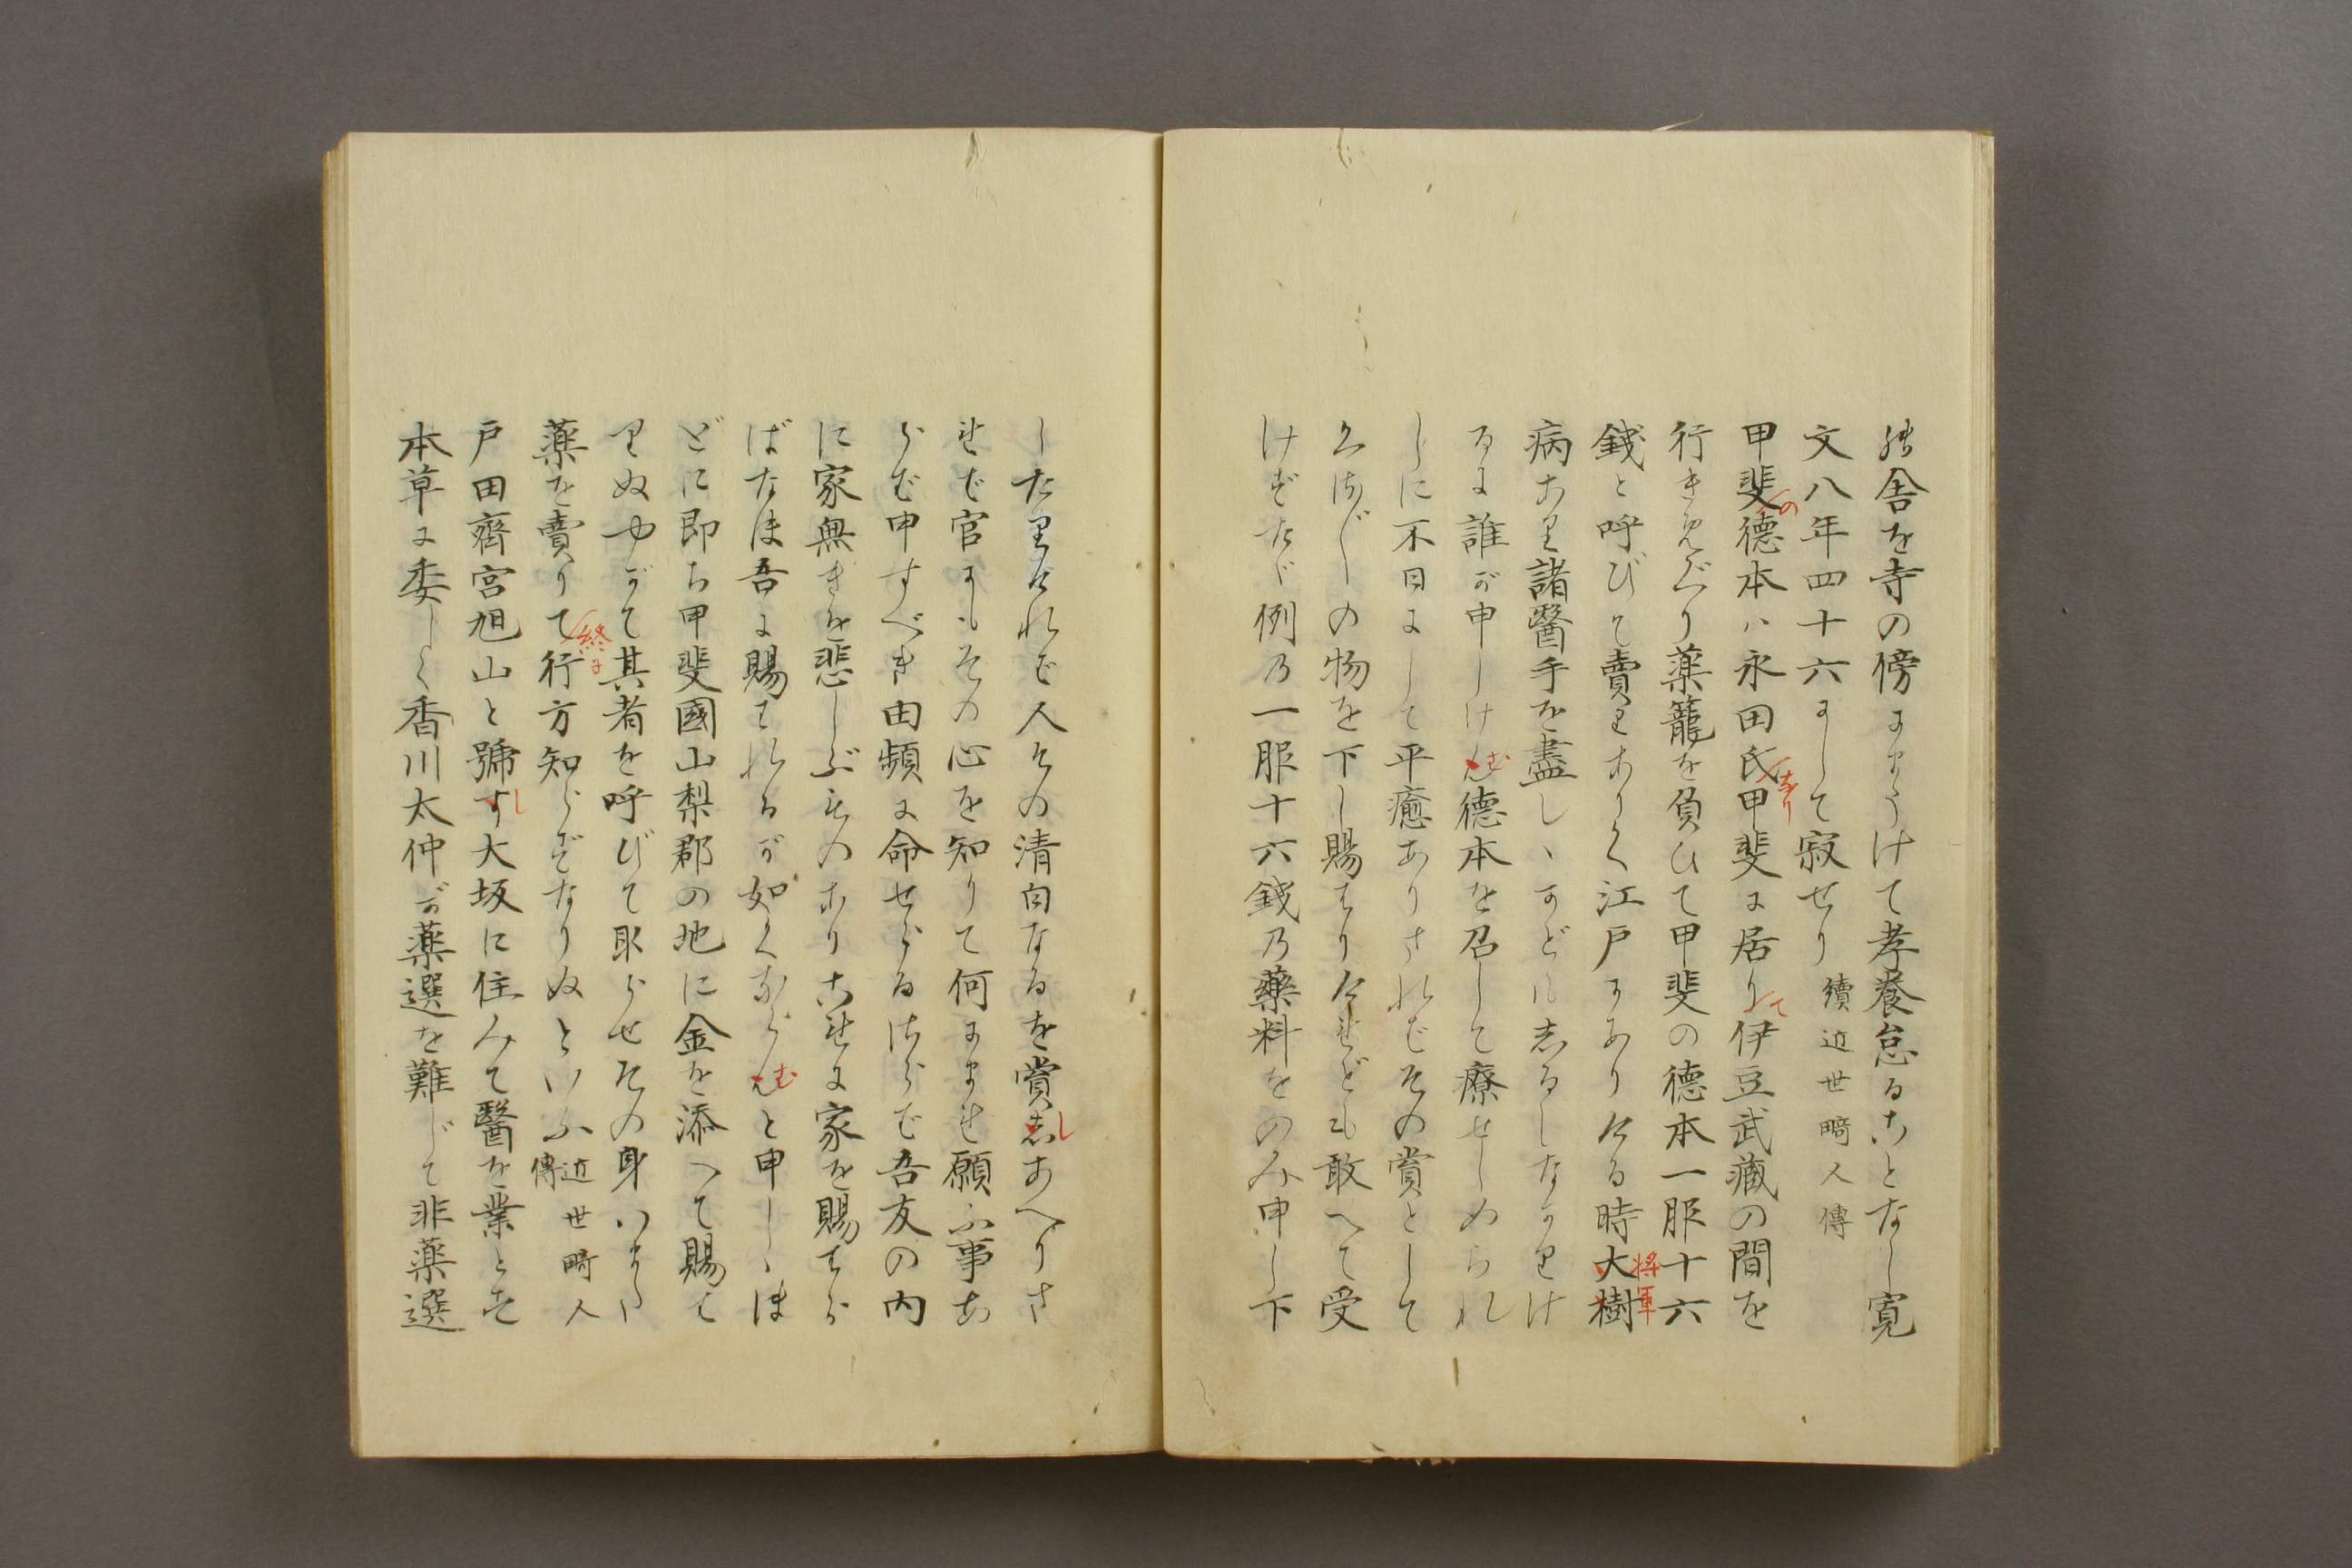 舎を寺の傍にまうけて孝養怠ることなし寛
文八年四十六にして寂せり 續近世畸人傳
甲斐の徳本ハ永田氏なり甲斐に居りて伊豆武蔵の間を
行きめぐり薬籠を負ひて甲斐の徳本一服十六
錢と呼びて賣りありく江戸にありける時大樹将軍
病あり諸醫手を盡し、かどもしるしなかりけ
るに誰が申しけんむ徳本を召して療せしめられ
しに不日にして平癒ありさればその賞として
くさ〴〵の物を下し賜はりけれども敢へて受
けずたゞ例の一服十六錢の薬料をのみ申し下
したりければ人その清白なるを賞志しあへりさ
れば官にもその心を知りて何にまれ願ふ事あ
らば申すべき由頻に命せらるさらば吾友の内
に家無きを悲しぶものありこれに家を賜はら
ばなほ吾に賜はれるが如くならんむと申し、ほ
どに即ち甲斐國山梨郡の地に金を添へて賜は
りぬやがて其者を呼びて取らせその身ハまた
薬を賣りて終に行方知らずなりぬといふ 近世畸人傳
戸田齋宮旭山と號すし大坂に住みて醫を業とす
本草に委しく香川太仲が薬選を難じて非薬選